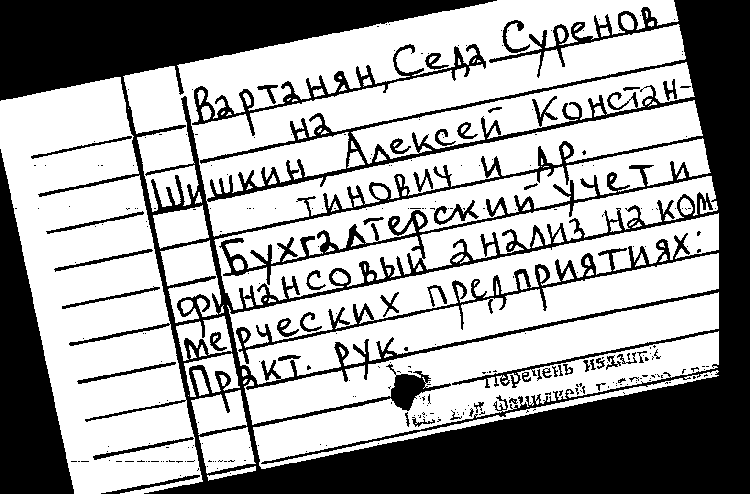 Вартанян, Седа Суренов
на
Шишкин, Алексей Констан-
тинович и др.
Бухгалтерский учет и
финансовый анализ на ком-
мерческих предприятиях:
Практ. рук.
Перечень изданий
фамилией